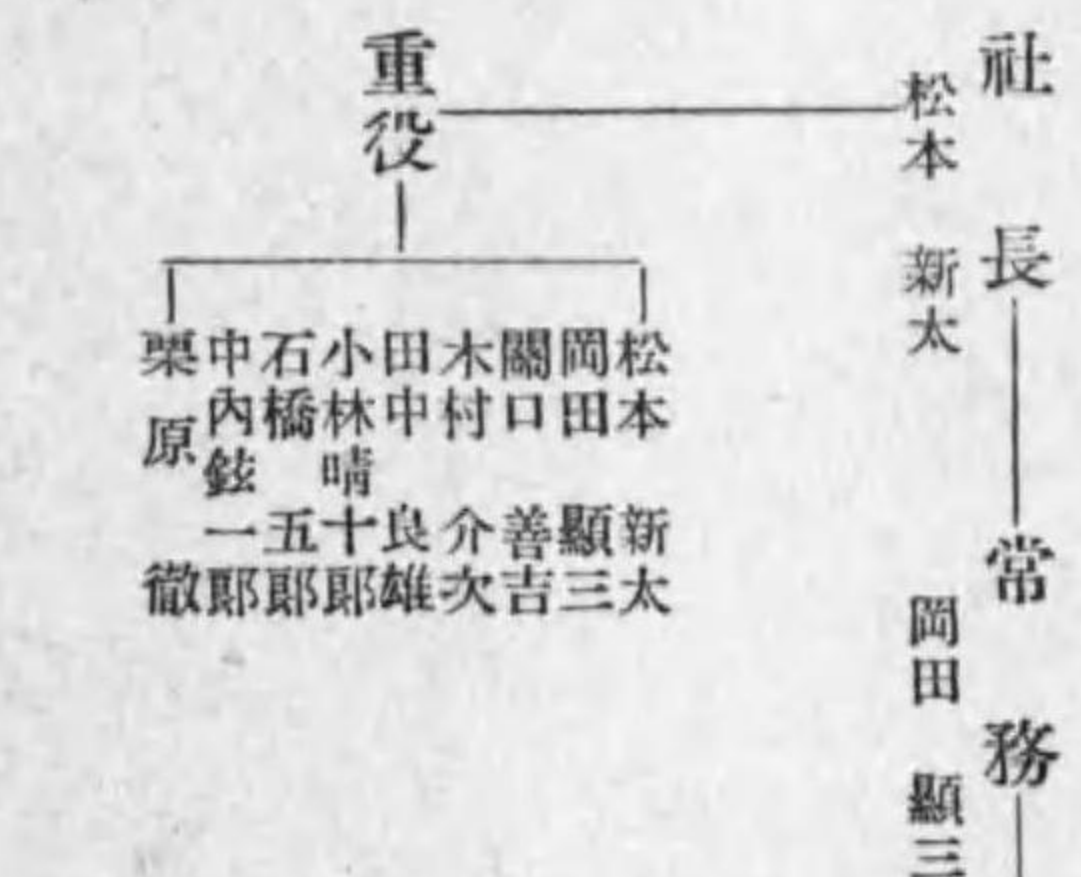 社長
松本 新太
常務
岡田 顯三
重役
松本 新太
岡田 顯三
關口 善吉
木村 介次
田中 良雄
小林晴十郎
石橋 五郎
中內鉉一郎
栗原 徹